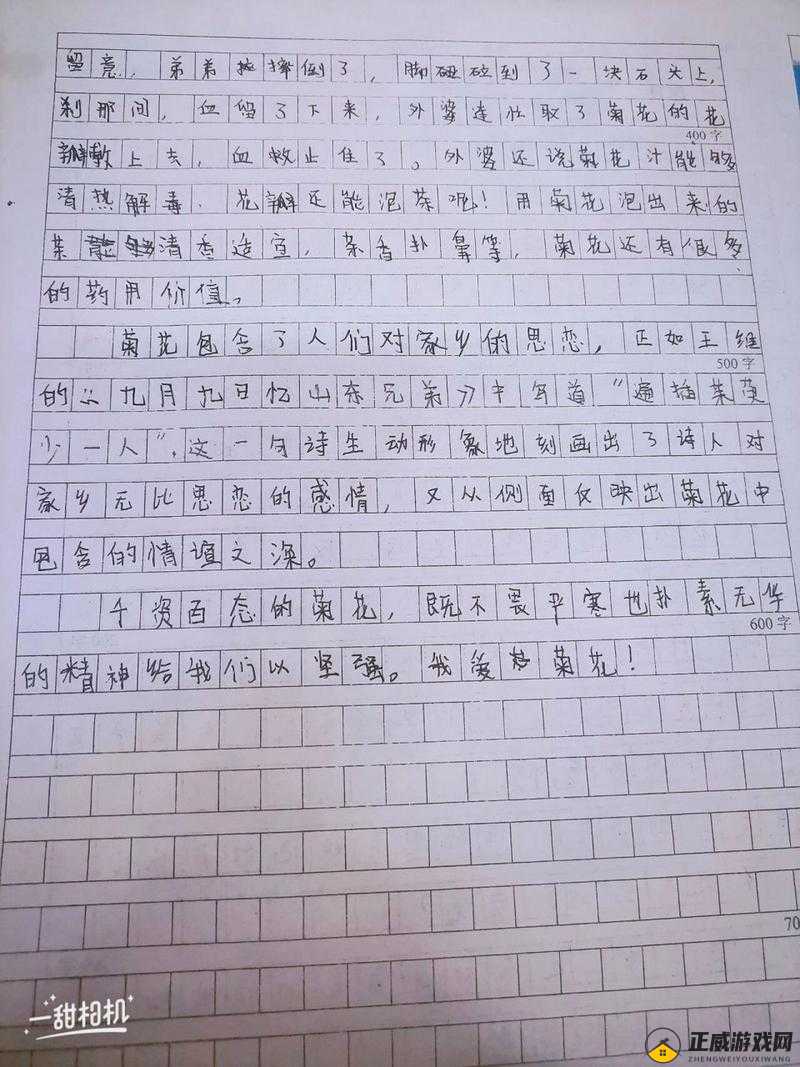 留意，弟弟摔倒了，脚碰到了一块石头上，
刹那间，血留了下来，外婆连忙取了菊花的花
400字
瓣敷上去，血救止住了。外婆还说菊花汁能够
清热解毒．花瓣还能泡茶呢！用菊花泡出来的
茶清香适宜，茶香扑鼻等，菊花还有很多
的药用价值。
菊花包含了人们对家乡的思恋，正如王维
500字
的《九月九日忆山东兄弟》中写道“遍插茱萸
少一人”．这一句诗生动形象地刻画出了诗人对
家乡无比思恋的感情，又从侧面反映出菊花中
包含的情谊之深。
千资百态的菊花，既不畏严寒也扑素无华
600字
的精神给我们以坚强。我爱菊花！
70
一甜相机
正威游戏网
ZHENGWEIYOUXIWANG